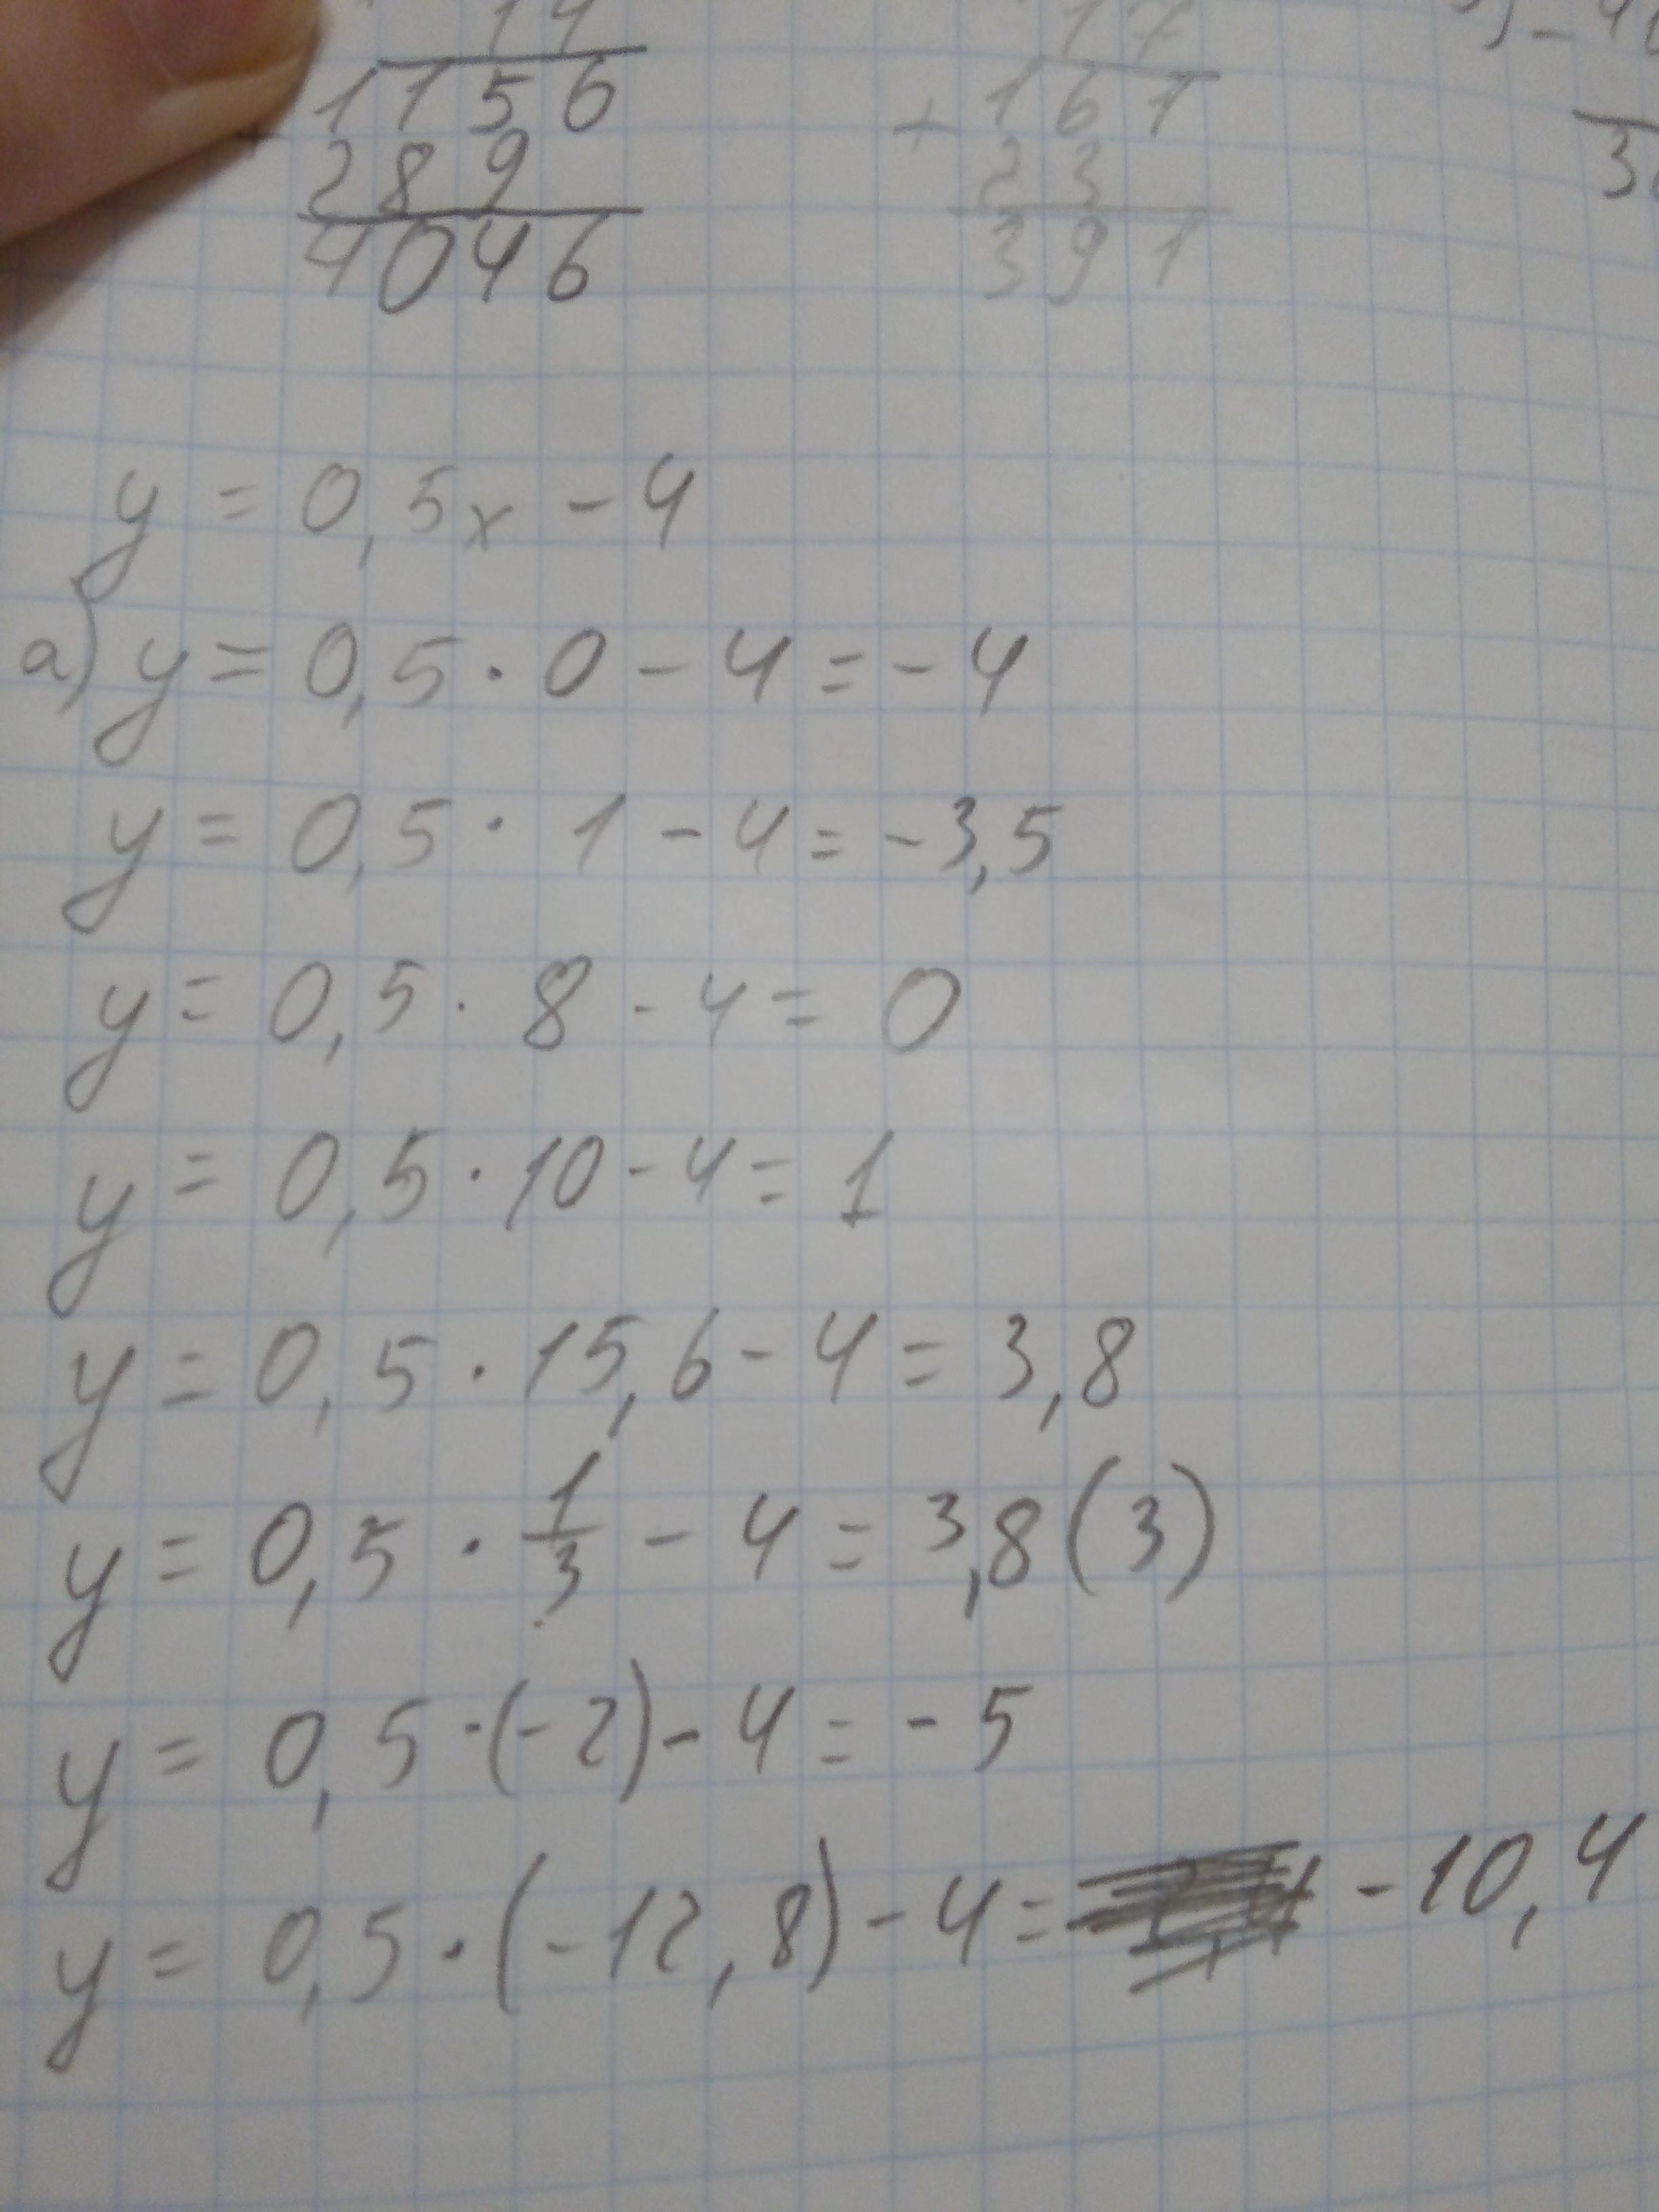 1156 + 161
289 23
4046 391
y = 0,5x - 4
a) y = 0,5 · 0 - 4 = -4
y = 0,5 · 1 - 4 = -3,5
y = 0,5 · 8 - 4 = 0
y = 0,5 · 10 - 4 = 1
y = 0,5 · 15,6 - 4 = 3,8
y = 0,5 · 1/3 - 4 = 3,8(3)
y = 0,5 · (-2) - 4 = -5
y = 0,5 · (-12,8) - 4 = -10,4